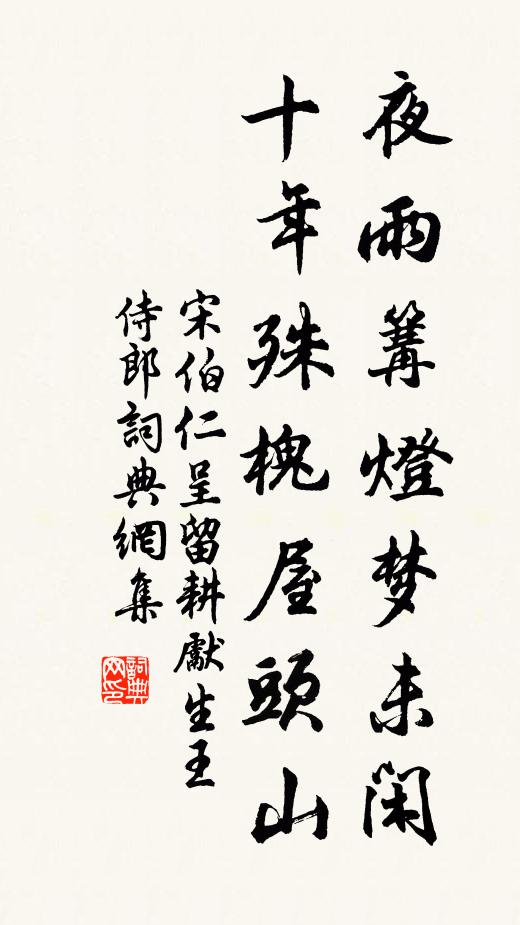 夜雨篝燈梦未闲
十年殊槐屋頭山
宋伯仁呈留耕獻生王
侍郎詞典網集
詞典网印